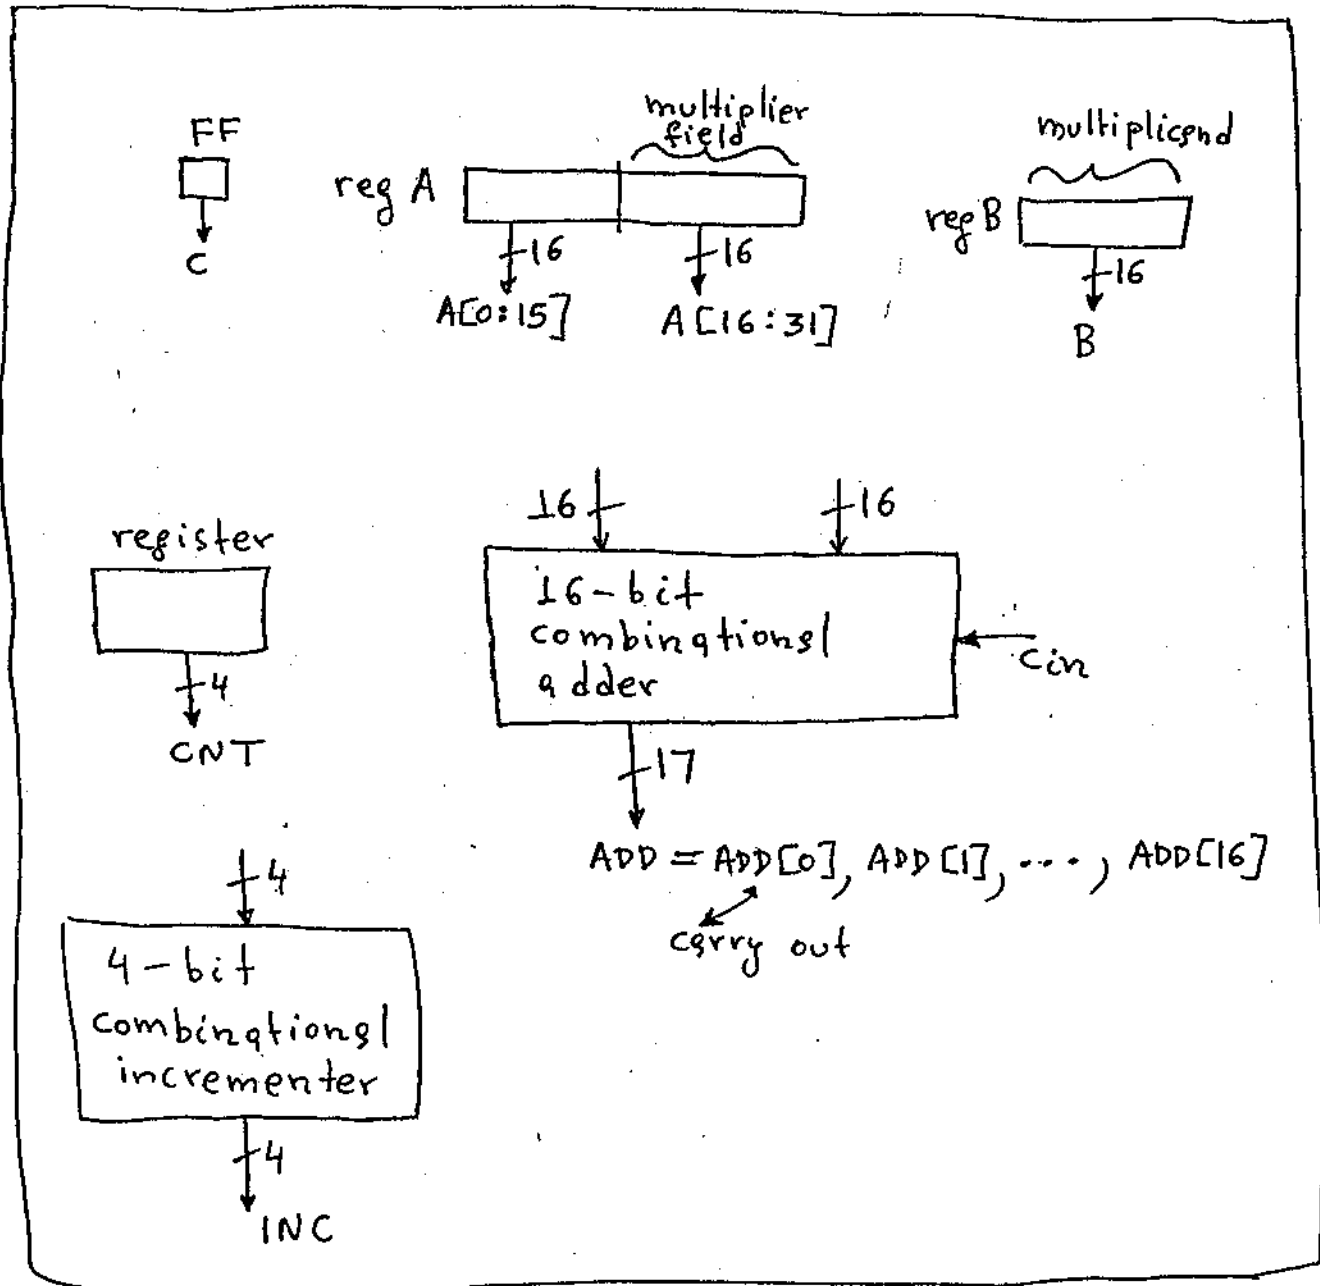 FF
C
multiplier
field
reg A
16
16
A[0:15]
A[16:31]
multiplicand
reg B
16
B
register
4
CNT
16
16
16-bit
combinational
adder
Cin
17
ADD = ADD[0], ADD[1], ...., ADD[16]
carry out
4
4-bit
combinational
incrementer
4
INC